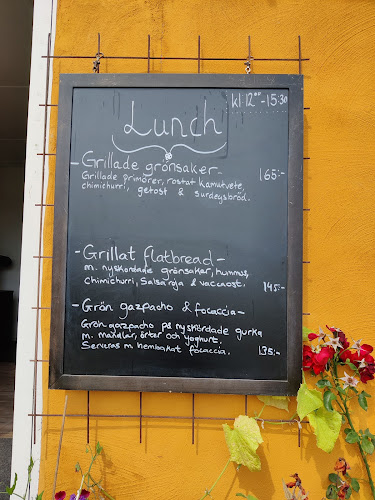 kl 12⁰⁰-15:30
Lunch
- Grillade grönsaker -
Grillade primörer, rostat kamutvete, 165:-
chimichurri, getost & surdegsbröd.
- Grillat flatbread -
m. nyskördade grönsaker, hummus,
chimichurri, Salsa roja & vaccaost. 145:-
- Grön gazpacho & focaccia -
Grön gazpacho på nyskördade gurka
m. mandlar, örter och yoghurt.
Serveras m hembakat focaccia. 135:-